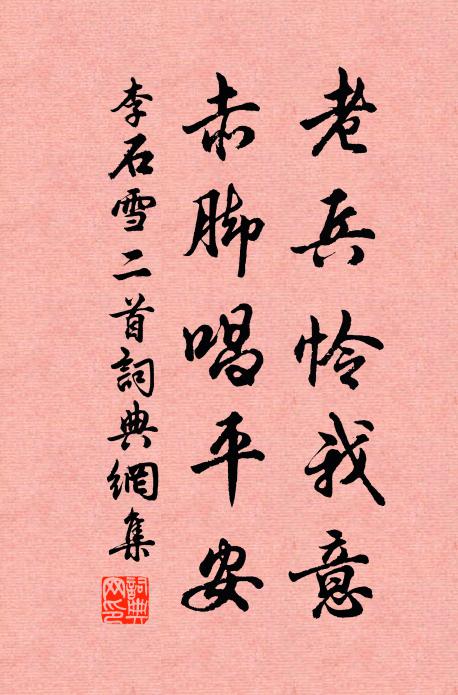 老兵怜我意
赤脚唱平安
李石雪二首詞典網集
詞典網印